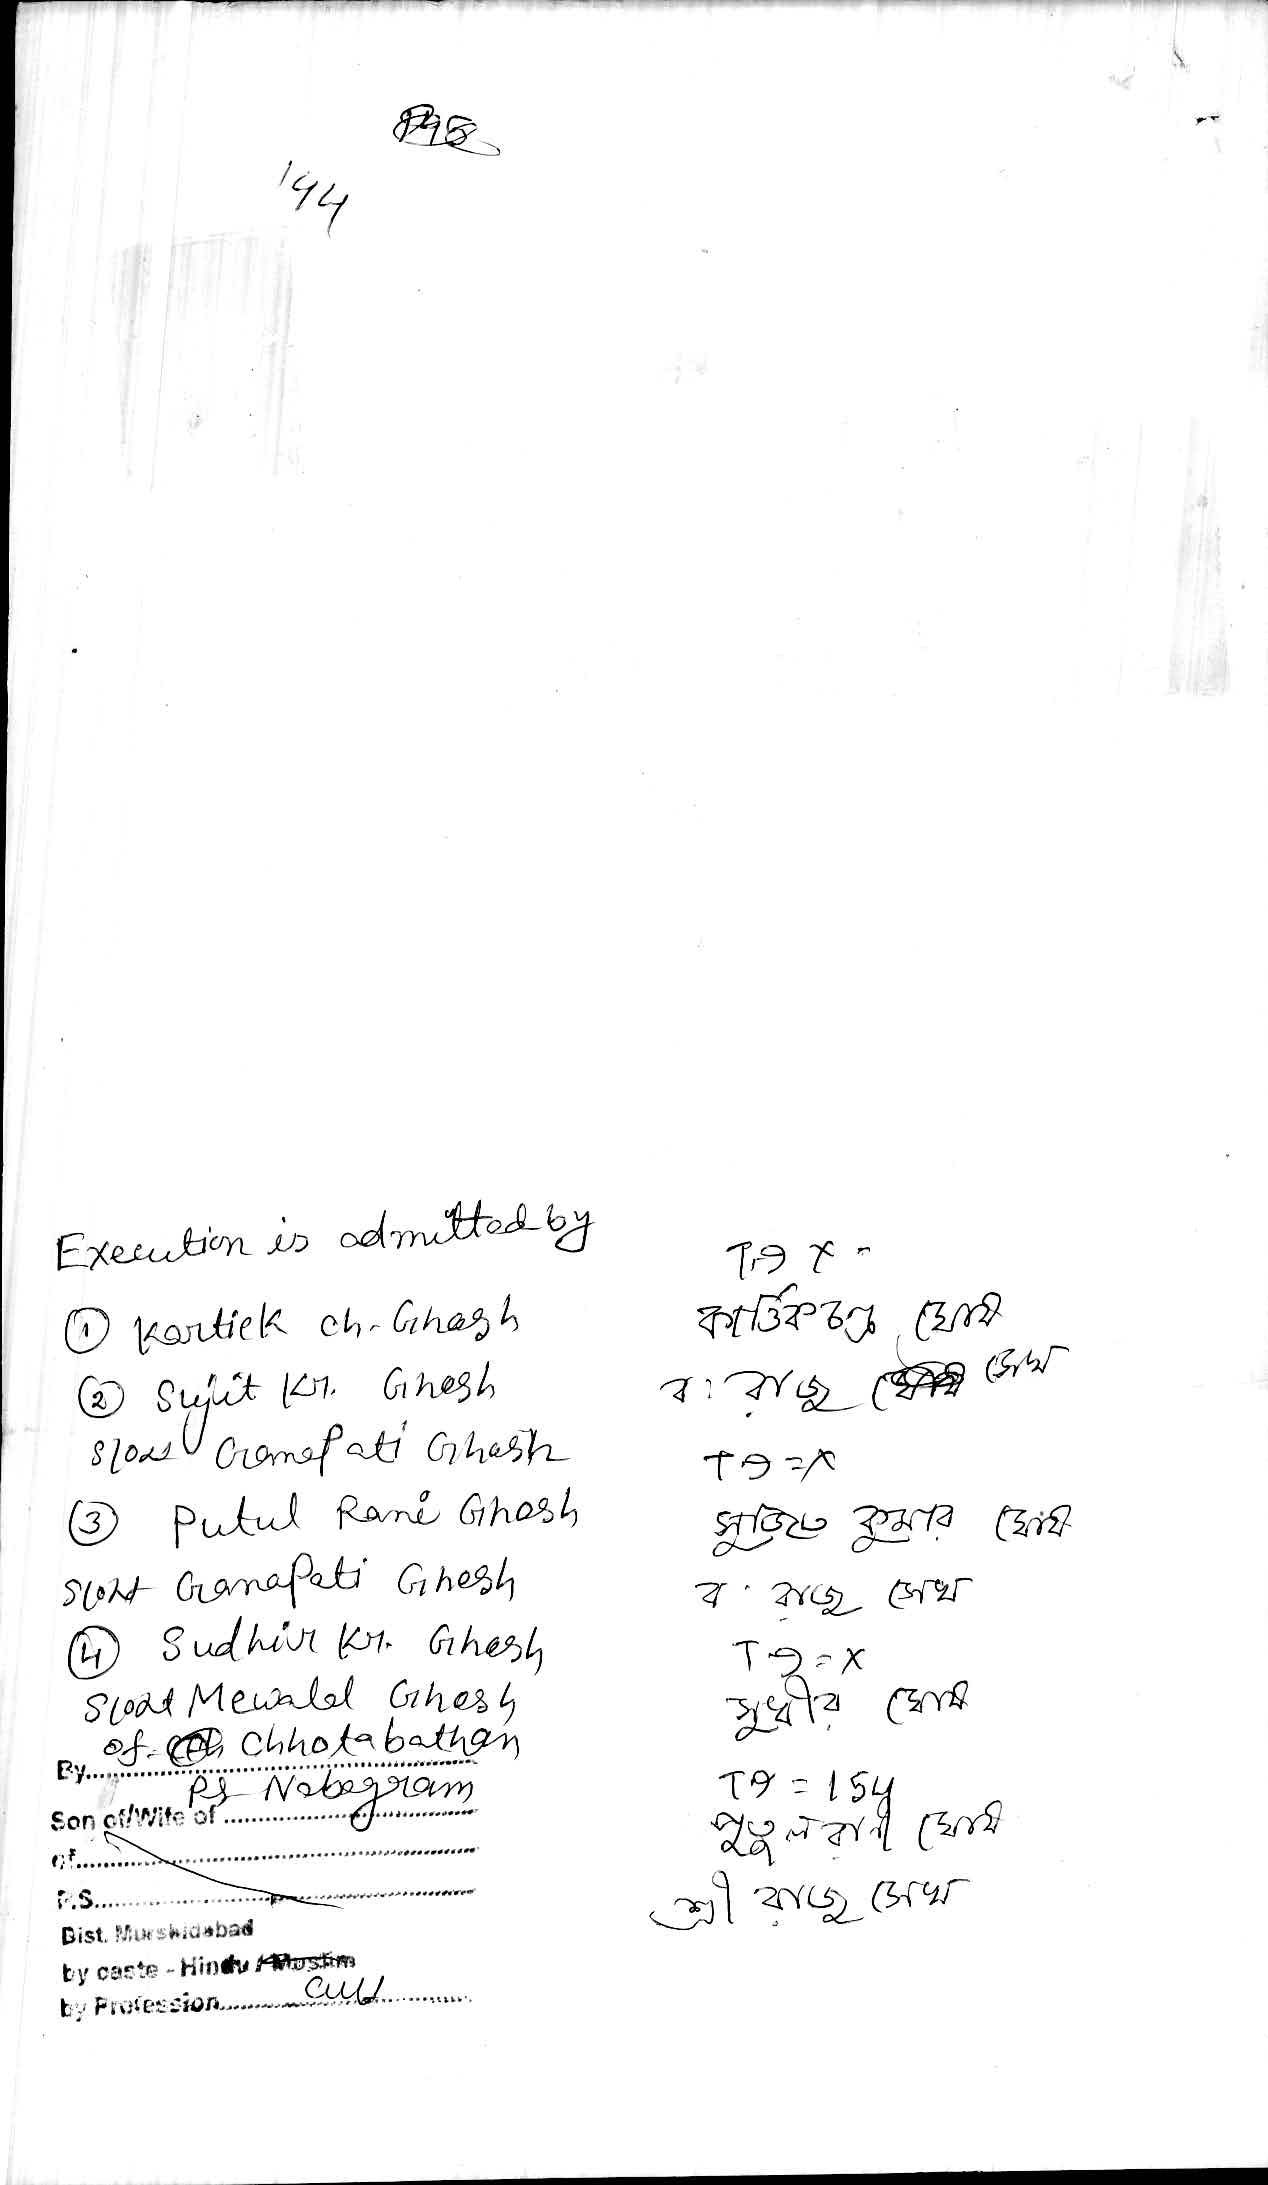 194
Execution is admitted by
① Kartick ch. Ghosh
② Sujit Kr. Ghosh
Ganapati Ghosh
③ Putul Rani Ghosh
Ganapati Ghosh
④ Sudhir Kr. Ghosh
Mewalal Ghosh
of Chhotabathan
By
PS Nabagram
Son of/Wife of
of
P.S.
Dist. Murshidabad
by caste - Hindu / Muslim
by Profession
কার্ত্তিকচন্দ্র ঘোষ
ব: রাজু সেখ
সুজিত কুমার ঘোষ
ব: রাজু সেখ
সুধীর ঘোষ
= 154
পুতুল রানী ঘোষ
শ্রী রাজু সেখ